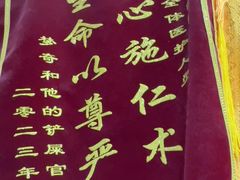 全体医护人员
心施仁术
生命以尊严
梦奇和他的铲屎官
二零二三年